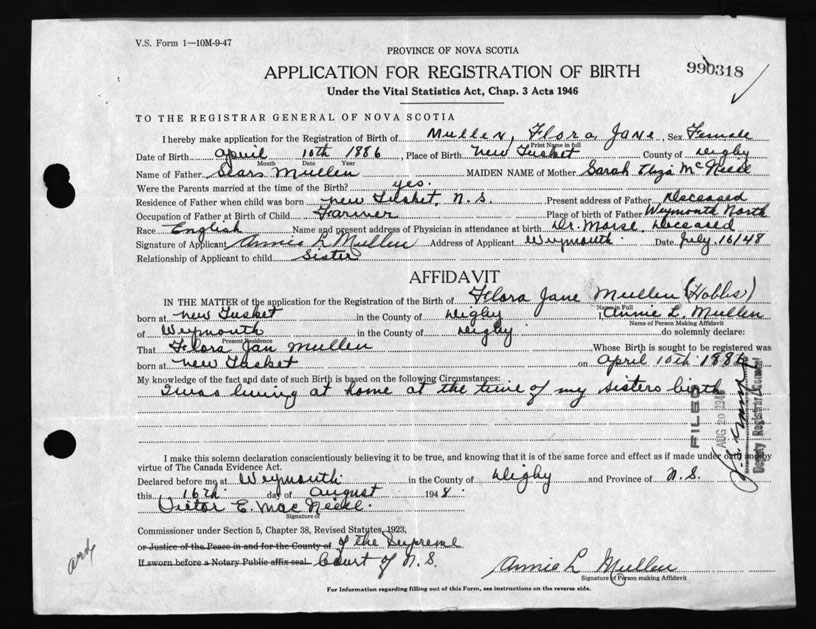 V.S. Form 1—10M-9-47
PROVINCE OF NOVA SCOTIA
APPLICATION FOR REGISTRATION OF BIRTH
990318
Under the Vital Statistics Act, Chap. 3 Acts 1946
TO THE REGISTRAR GENERAL OF NOVA SCOTIA
I hereby make application for the Registration of Birth of Mullen, Flora Jane, Sex Female
Print Name in full
Date of Birth April 10th 1886, Place of Birth New Tusket County of Digby
Month Date Year
Name of Father Sears Mullen MAIDEN NAME of Mother Sarah Eliza McNeil
Were the Parents married at the time of the Birth? yes.
Residence of Father when child was born New Tusket, N.S. Present address of Father Deceased
Occupation of Father at Birth of Child Farmer Place of birth of Father Weymouth North
Race English Name and present address of Physician in attendance at birth Dr. Morse, Deceased
Signature of Applicant Annie L Mullen Address of Applicant Weymouth Date July 16/48
Relationship of Applicant to child Sister
AFFIDAVIT
IN THE MATTER of the application for the Registration of the Birth of Flora Jane Mullen (Hobbs)
Name in Full
born at New Tusket in the County of Digby I, Annie L. Mullen
Name of Person Making Affidavit
of Weymouth in the County of Digby do solemnly declare:
Present Residence
That Flora Jan Mullen Whose Birth is sought to be registered was
born at New Tusket on April 10th 1886
My knowledge of the fact and date of such Birth is based on the following Circumstances:
I was living at home at the time of my sisters birth
FILED
AUG 20 1948
Deputy Registrar General
I make this solemn declaration conscientiously believing it to be true, and knowing that it is of the same force and effect as if made under oath and by
virtue of The Canada Evidence Act.
Declared before me at Weymouth in the County of Digby and Province of N.S.
this 16th day of August 1948.
Victor E. MacNeill.
Signature of
Commissioner under Section 5, Chapter 38, Revised Statutes, 1923,
or Justice of the Peace in and for the County of of the Supreme
If sworn before a Notary Public affix seal. Court of N.S.
Annie L Mullen
Signature of Person making Affidavit
For information regarding filling out of this Form, see instructions on the reverse side.